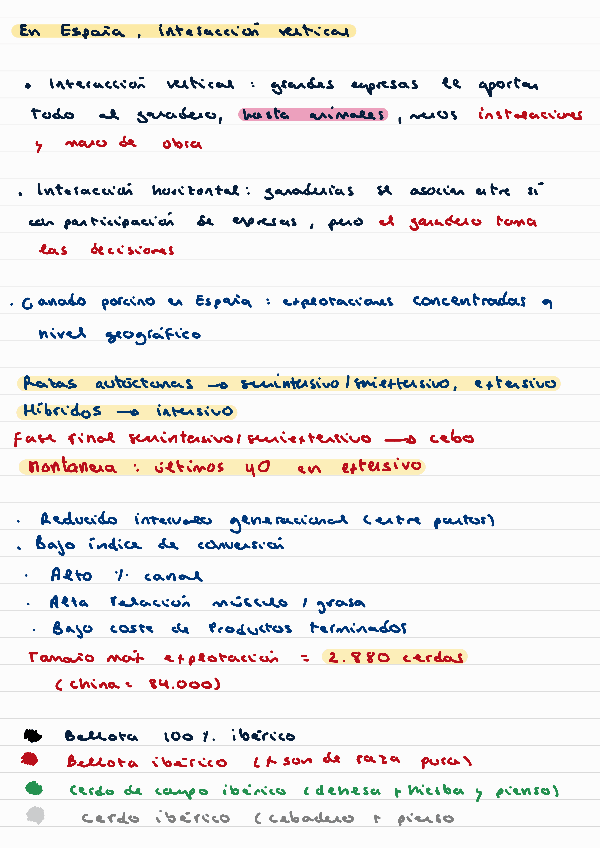 En España, Interacción vertical
• Interacción vertical : grandes empresas le aportan
todo al ganadero, hasta animales, menos instalaciones
y mano de obra
• Interacción horizontal : ganaderías se asocian entre sí
con participación de empresas, pero el ganadero toma
las decisiones
• Ganado porcino en España : explotaciones concentradas a
nivel geográfico
Razas autóctonas → semintensivo/semiextensivo, extensivo
Híbridos → intensivo
Fase final semintensivo/semiextensivo → cebo
Montanera : últimos 40 en extensivo
• Reducido intervalo generacional (entre partos)
• Bajo índice de conversión
• Alto % canal
• Alta relación músculo / grasa
• Bajo coste de productos terminados
Tamaño max explotación = 2.880 cerdas
(China = 84.000)
Bellota 100 % ibérico
Bellota ibérico ( son de raza pura)
Cerdo de campo ibérico (dehesa + hierba y pienso)
Cerdo ibérico (cebadero + pienso